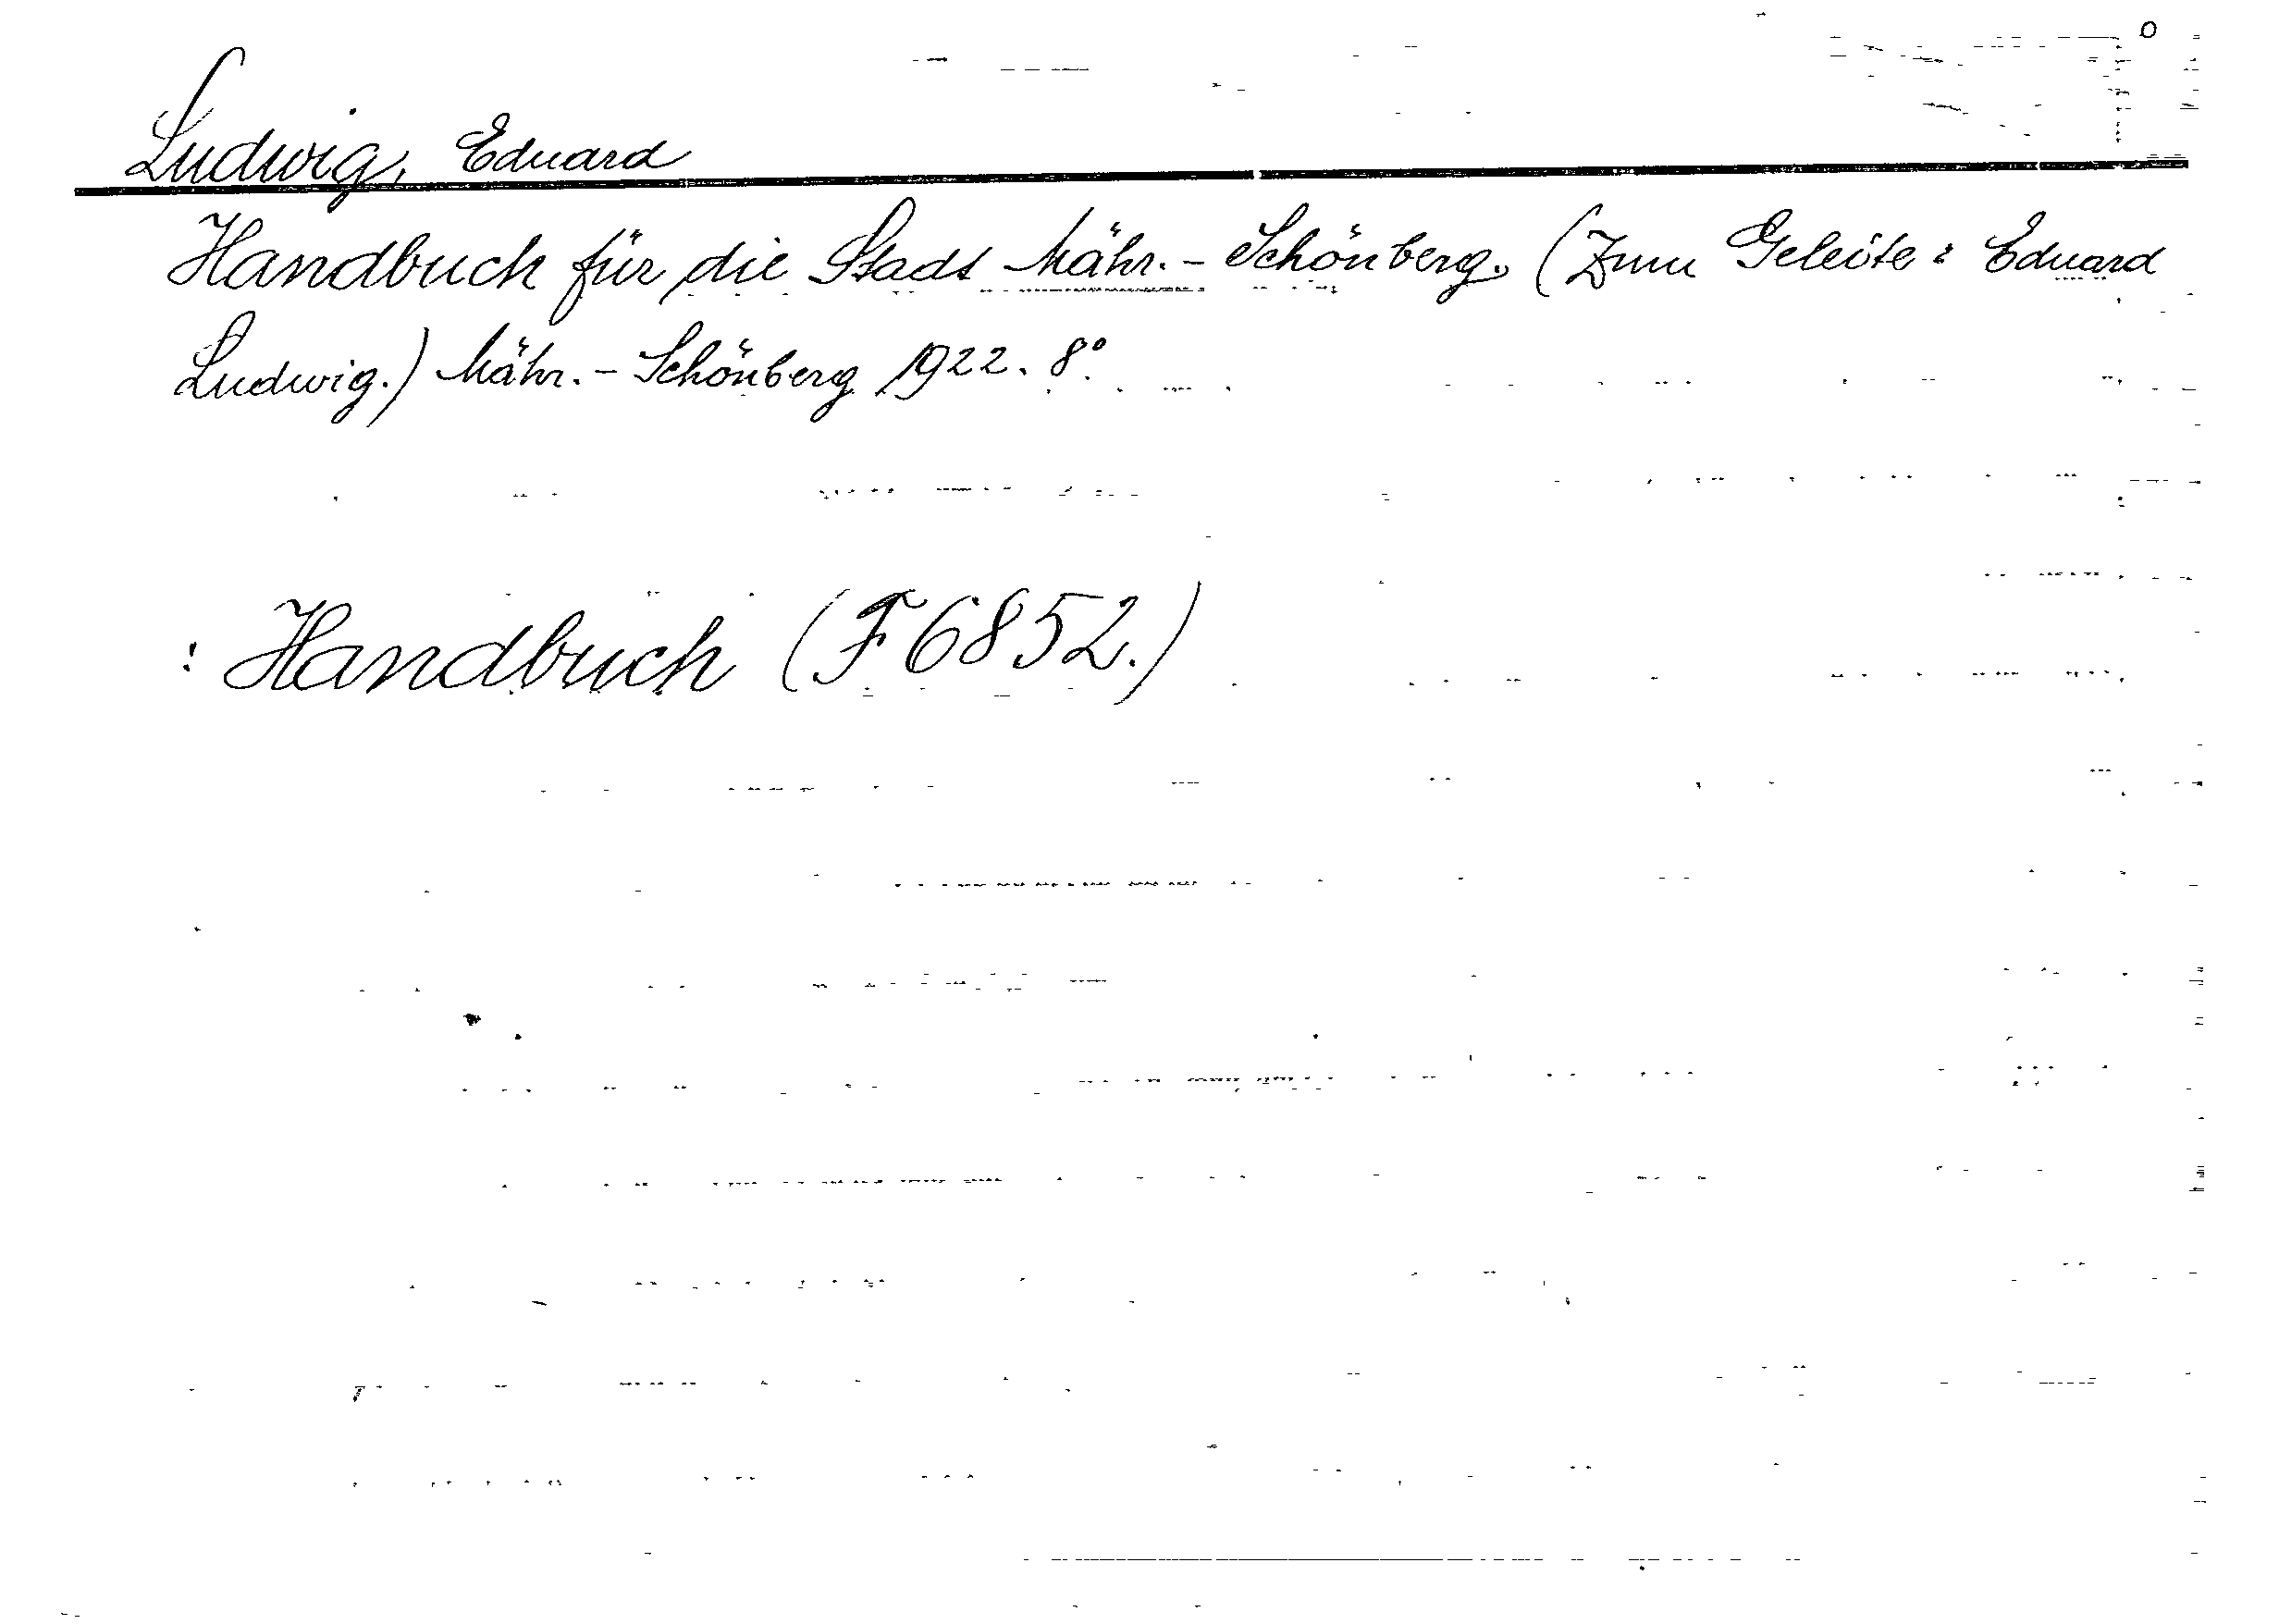 Ludwig, Eduard
Handbuch für die Stadt Mähr.-Schönberg. (Zum Geleite: Eduard
Ludwig.) Mähr.-Schönberg 1922. 8°
: Handbuch (F 6852.)